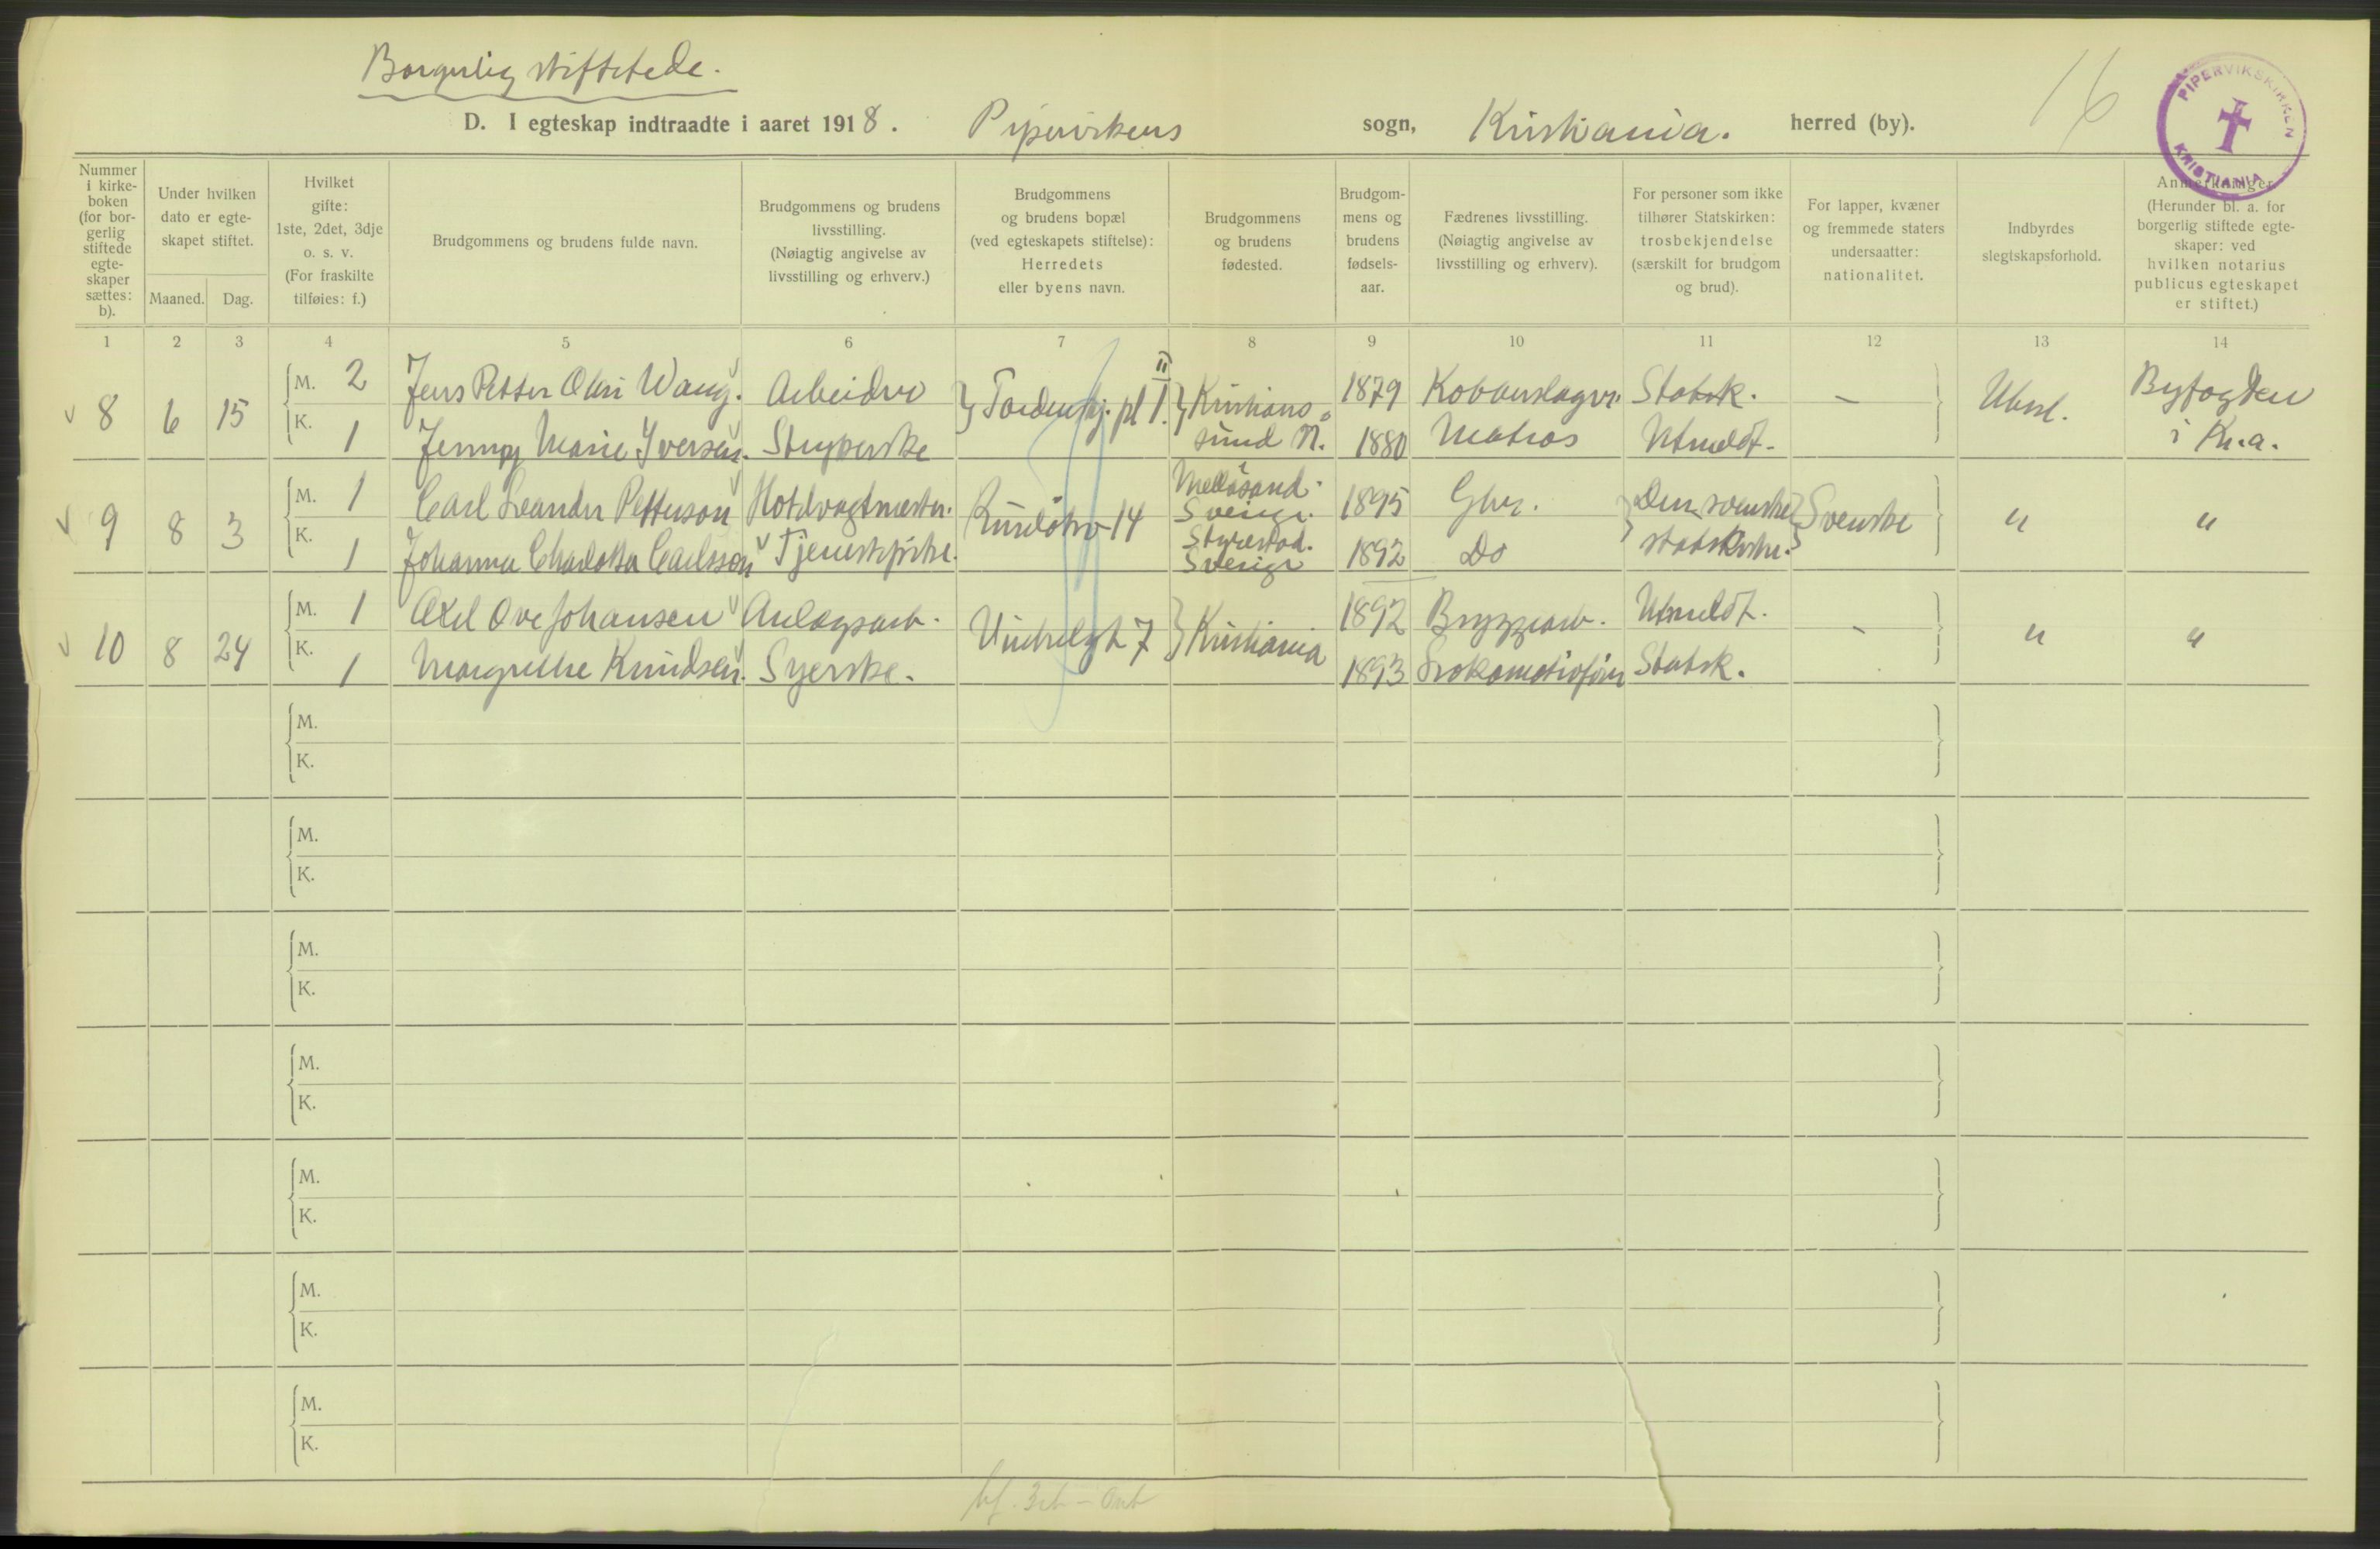 Borgerlig stiftede.
16
PIPERVIKSKIRKEN
KRISTIANIA
D. I egteskap indtraadte i aaret 1918. Pipervikens sogn, Kristiania. herred (by).
Nummer i kirkeboken (for borgerlig stiftede egteskaper sættes: b).
Under hvilken dato er egteskapet stiftet.
Maaned. Dag.
Hvilket gifte: 1ste, 2det, 3dje o. s. v. (For fraskilte tilføies: f.)
Brudgommens og brudens fulde navn.
Brudgommens og brudens livsstilling. (Nøiagtig angivelse av livsstilling og erhverv.)
Brudgommens og brudens bopæl (ved egteskapets stiftelse): Herredets eller byens navn.
Brudgommens og brudens fødested.
Brudgommens og brudens fødselsaar.
Fædrenes livsstilling. (Nøiagtig angivelse av livsstilling og erhverv).
For personer som ikke tilhører Statskirken: trosbekjendelse (særskilt for brudgom og brud).
For lapper, kvæner og fremmede staters undersaatter: nationalitet.
Indbyrdes slegtskapsforhold.
Anmerkninger. (Herunder bl. a. for borgerlig stiftede egteskaper: ved hvilken notarius publicus egteskapet er stiftet.)
1 2 3 4 5 6 7 8 9 10 11 12 13 14
8 6 15 M. 2 Jens Petter Olai Wang. Arbeider Tordenskj. pl 1. II Kristianssund N. 1879 Kobberslager. Statsk. — Ubesl. Byfogden i Kr.a.
K. 1 Jenny Marie Iversen. Strykerske 1880 Matros Utmeldt.
9 8 3 M. 1 Carl Leander Petterson Hotelvagtmester. Ruseløkv 14 Mellösand. Sverige. 1895 Gbr. Den svenske statskirke. Svenske " "
K. 1 Johanna Charlotta Carlsson Tjenestepike. Styrestad. Sverige 1892 Do
10 8 24 M. 1 Axel Ove Johansen Anlægsarb. 7 Kristiania 1892 Bryggearb. Utmeldt. - " "
K. 1 Margrethe Knudsen. Syerske. 1893 Lokomotivfører Statsk.
M.
K.
M.
K.
M.
K.
M.
K.
M.
K.
M.
K.
M.
K.